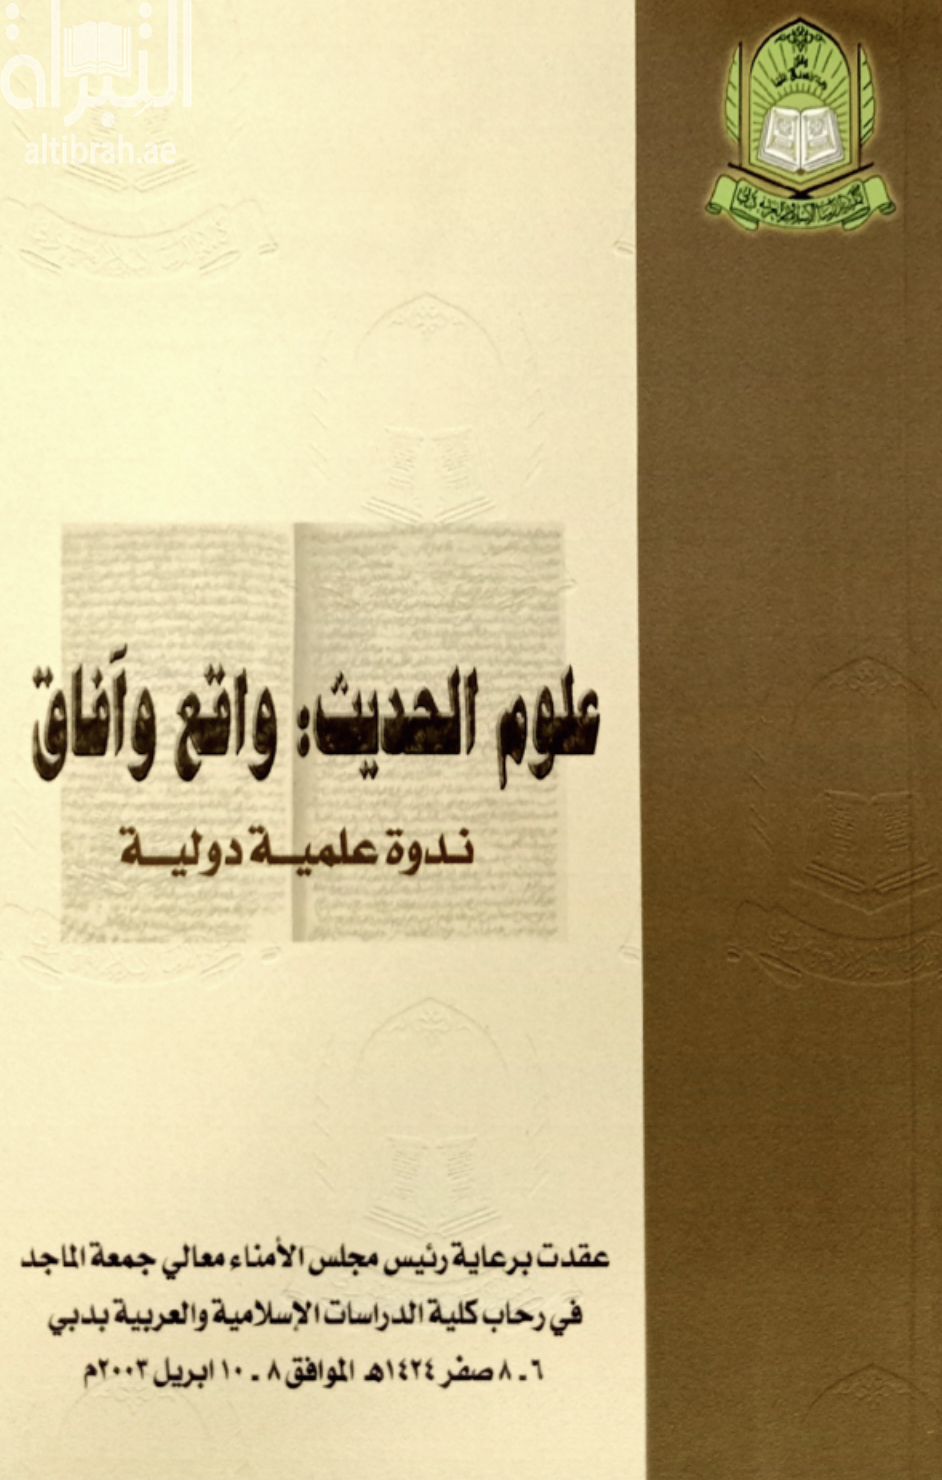 التبراة
altibrah.ae
كلية الدراسات الإسلامية والعربية دبي
علوم الحديث: واقع وآفاق
ندوة علمية دولية
عقدت برعاية رئيس مجلس الأمناء معالي جمعة الماجد
في رحاب كلية الدراسات الإسلامية والعربية بدبي
٦ ـ ٨ صفر ١٤٢٤هـ الموافق ٨ ـ ١٠ ابريل ٢٠٠٣م